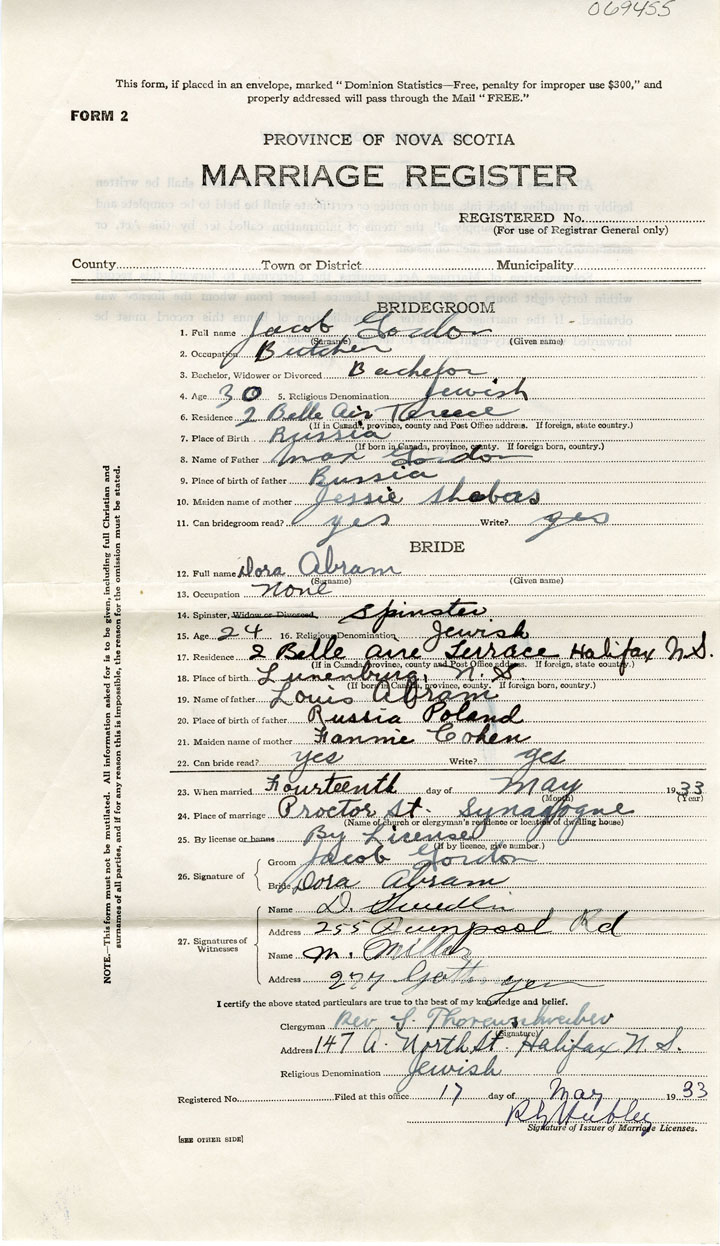 069455
This form, if placed in an envelope, marked "Dominion Statistics—Free, penalty for improper use $300," and
properly addressed will pass through the Mail "FREE."
FORM 2
PROVINCE OF NOVA SCOTIA
MARRIAGE REGISTER
REGISTERED No.
(For use of Registrar General only)
County Town or District Municipality
BRIDEGROOM
1. Full name Jacob Gordon
(Surname) (Given name)
2. Occupation Butcher
3. Bachelor, Widower or Divorced Bachelor
4. Age 30 5. Religious Denomination Jewish
6. Residence 2 Belle Air Terece
(If in Canada, province, county and Post Office address. If foreign, state country.)
7. Place of Birth Russia
(If born in Canada, province, county. If foreign born, country.)
8. Name of Father Max Gordon
9. Place of birth of father Russia
10. Maiden name of mother Jessie Shabas
11. Can bridegroom read? yes Write? yes
BRIDE
12. Full name Dora Abram
(Surname) (Given name)
13. Occupation None
14. Spinster, Widow or Divorced Spinster
15. Age 24 16. Religious Denomination Jewish
17. Residence 2 Belle aire Terrace Halifax N.S.
(If in Canada, province, county and Post Office address. If foreign, state country.)
18. Place of birth Lunenburg, N.S.
(If born in Canada, province, county. If foreign born, country.)
19. Name of father Louis Abram
20. Place of birth of father Russia Poland
21. Maiden name of mother Fannie Cohen
22. Can bride read? yes Write? yes
23. When married Fourteenth day of May 1933
(Month) (Year)
24. Place of marriage Proctor St. Synagogue
(Name of church or clergyman's residence or location of dwelling house)
25. By license or banns By License
(If by licence, give number.)
26. Signature of
Groom Jacob Gordon
Bride Dora Abram
27. Signatures of Witnesses
Name D.
Address 255 Rd
Name M. Miller
Address 277
I certify the above stated particulars are true to the best of my knowledge and belief.
Clergyman Rev.
(Signature)
Address 147 A. North St. Halifax N.S.
Religious Denomination Jewish
Registered No. Filed at this office 17 day of May 1933
Signature of Issuer of Marriage Licenses.
[SEE OTHER SIDE]
NOTE.—This form must not be mutilated. All information asked for is to be given, including full Christian and
surnames of all parties, and if for any reason this is impossible, the reason for the omission must be stated.